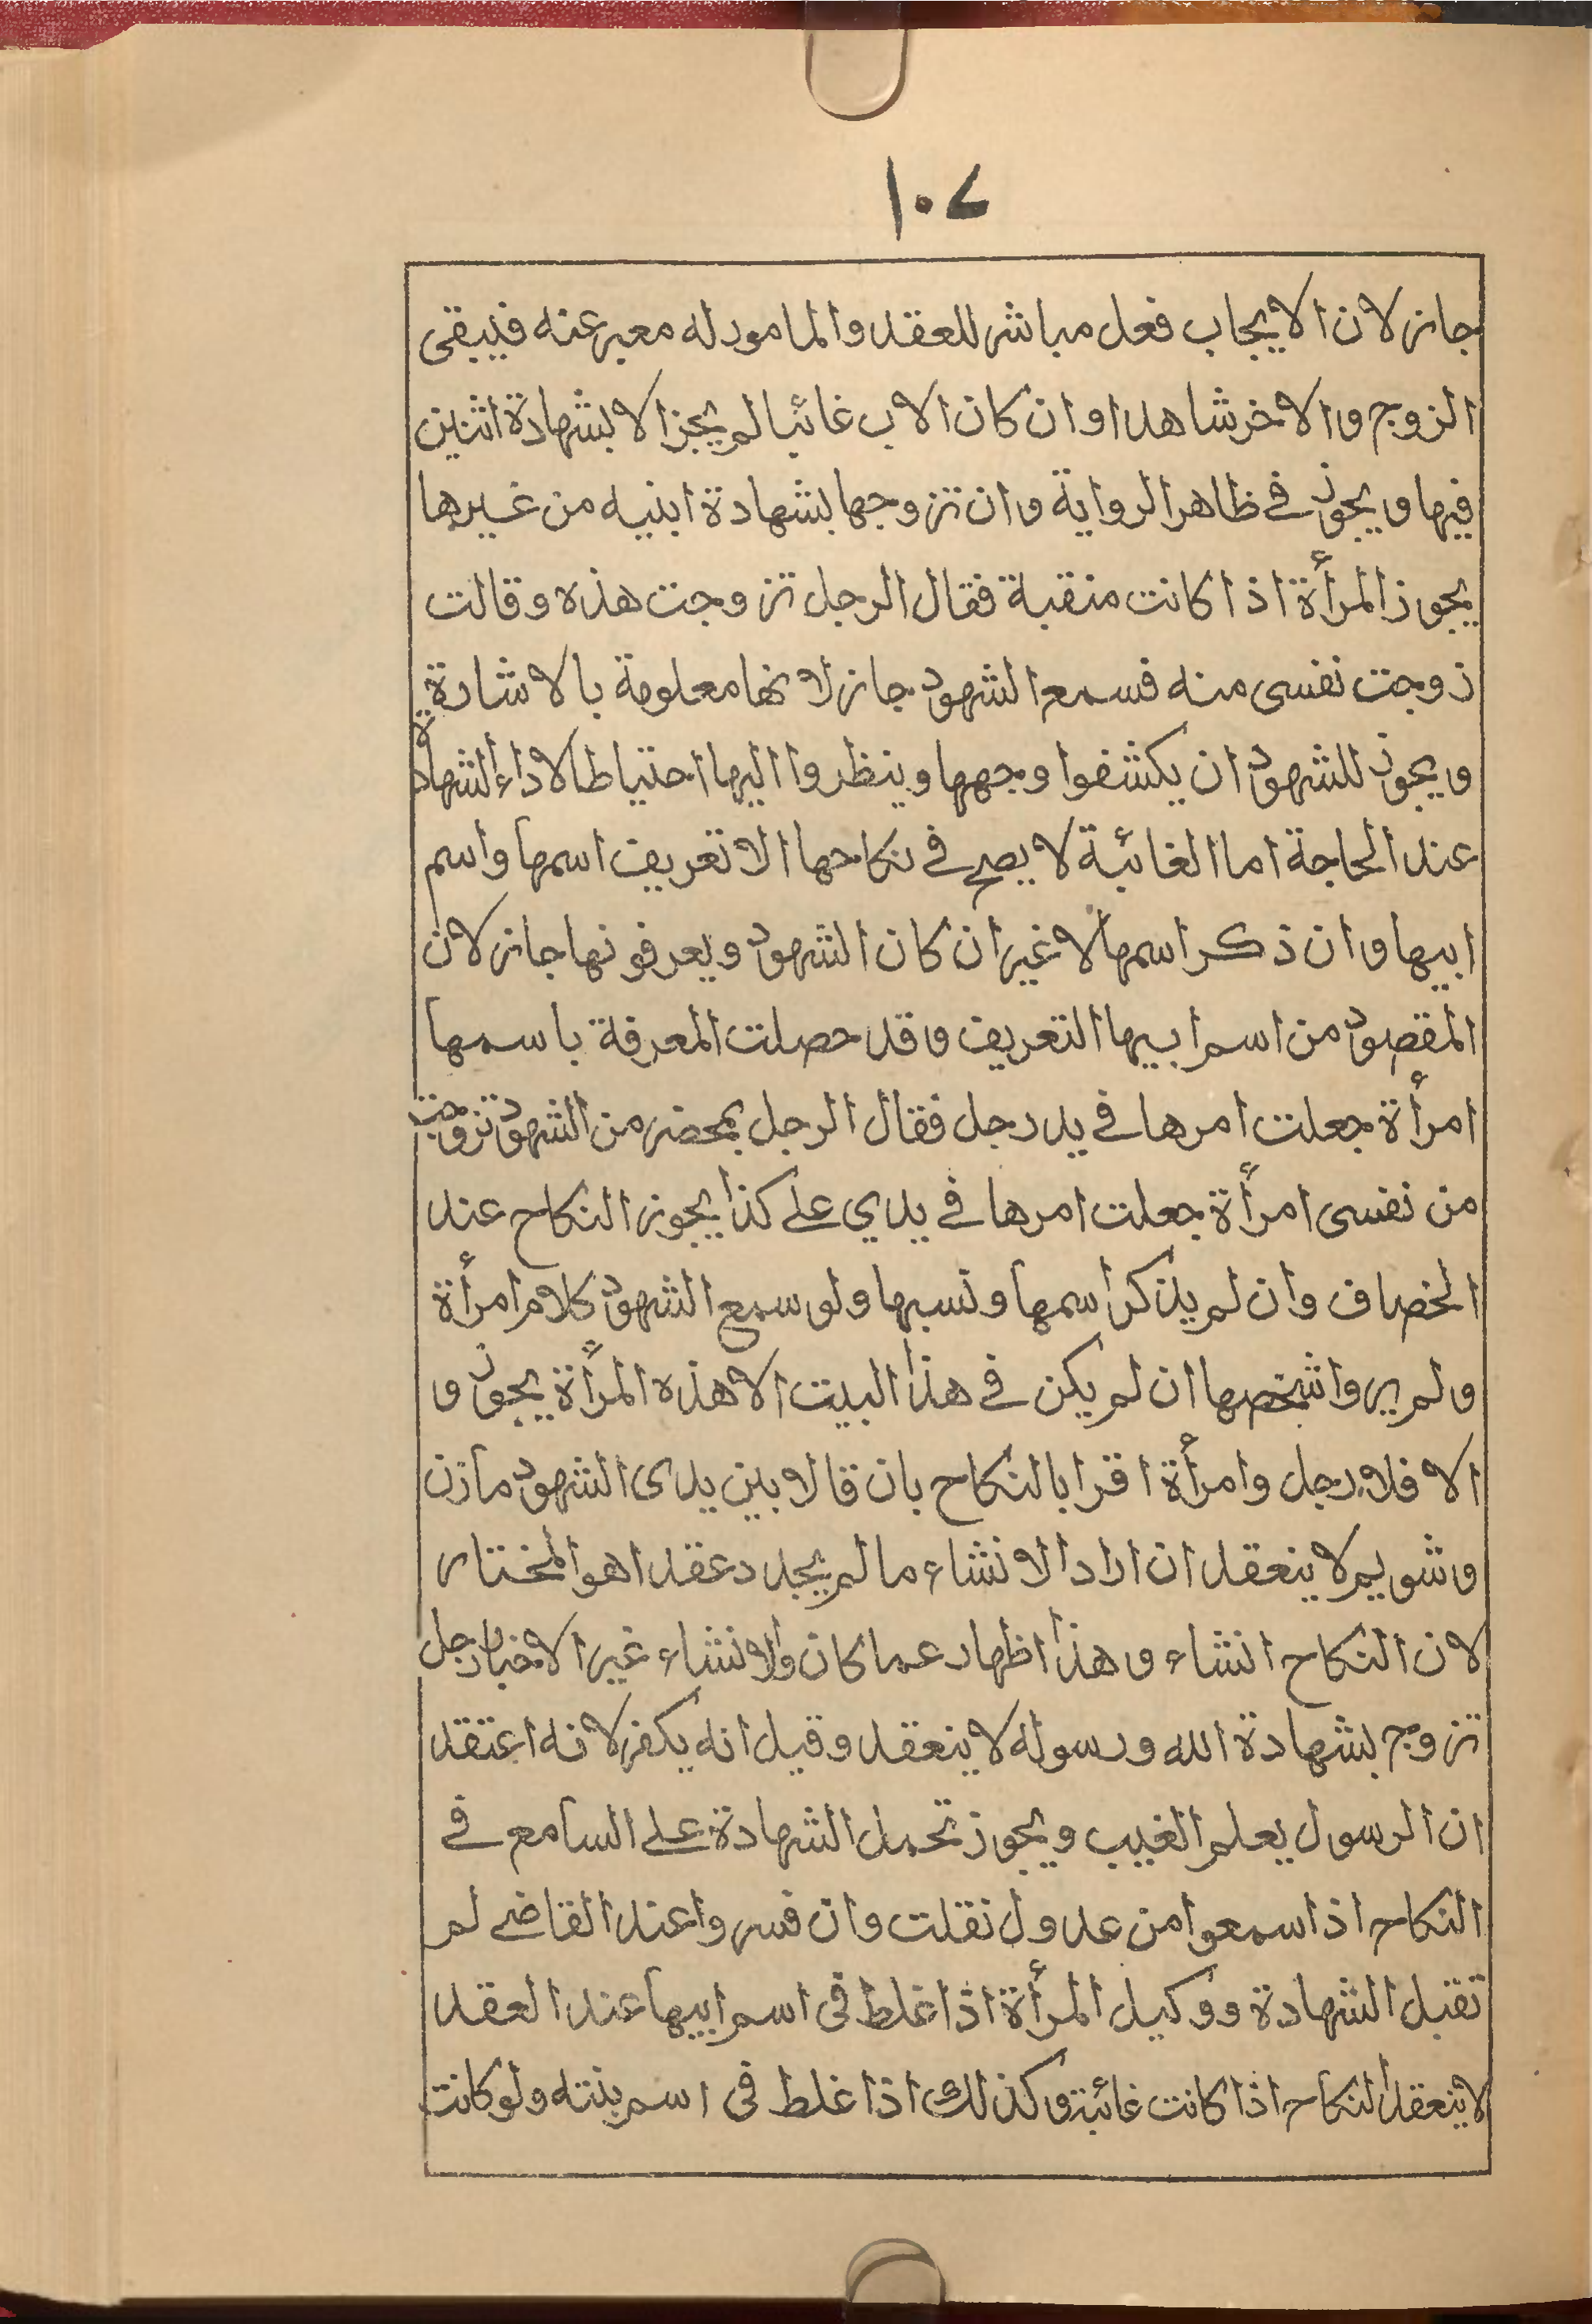 ١٠٧
جائز لان الايجاب فعل مباشر للعقد والمامور له معبر عنه فيبقى
الزوج والاخر شاهدا وان كان الاب غائبا لم يجز الا بشهادة اثنين
فيها ويجوز في ظاهر الرواية وان تزوجها بشهادة ابنيه من غيرها
يجوز المرأة اذا كانت منقبة فقال الرجل تزوجت هذه وقالت
زوجت نفسى منه فسمع الشهود جاز لانها معلومة بالاشارة
ويجوز للشهود ان يكشفوا وجهها وينظروا اليها احتياطا لاداء الشهادة
عند الحاجة اما الغائبة لا يصح في نكاحها الا تعريف اسمها واسم
ابيها وان ذكر اسمها لا غير ان كان الشهود ويعرفونها جاز لان
المقصود من اسم ابيها التعريف وقد حصلت المعرفة باسمها
امرأة جعلت امرها في يد رجل فقال الرجل بمحضر من الشهود تزوجت
من نفسى امرأة جعلت امرها في يدي على كذا يجوز النكاح عند
الخصاف وان لم يذكر اسمها ونسبها ولو سمع الشهود كلام امرأة
ولم يروا شخصها ان لم يكن في هذا البيت الا هذه المرأة يجوز و
الا فلا رجل وامرأة اقرا بالنكاح بان قالا بين يدى الشهود مازن
وشويم لا ينعقد ان ارادا الانشاء ما لم يجدد عقدا هو المختار
لان النكاح انشاء وهذا اظهار عما كان والانشاء غير الاخبار رجل
تزوج بشهادة الله ورسوله لا ينعقد وقيل انه يكفر لانه اعتقد
ان الرسول يعلم الغيب ويجوز تحمل الشهادة على السامع في
النكاح اذا سمعوا من عدول نقلت وان فسروا عند القاضي لم
تقبل الشهادة ووكيل المرأة اذا غلط فى اسم ابيها عند العقد
لا ينعقد النكاح اذا كانت غائبة وكذلك اذا غلط فى اسم بنته ولو كانت